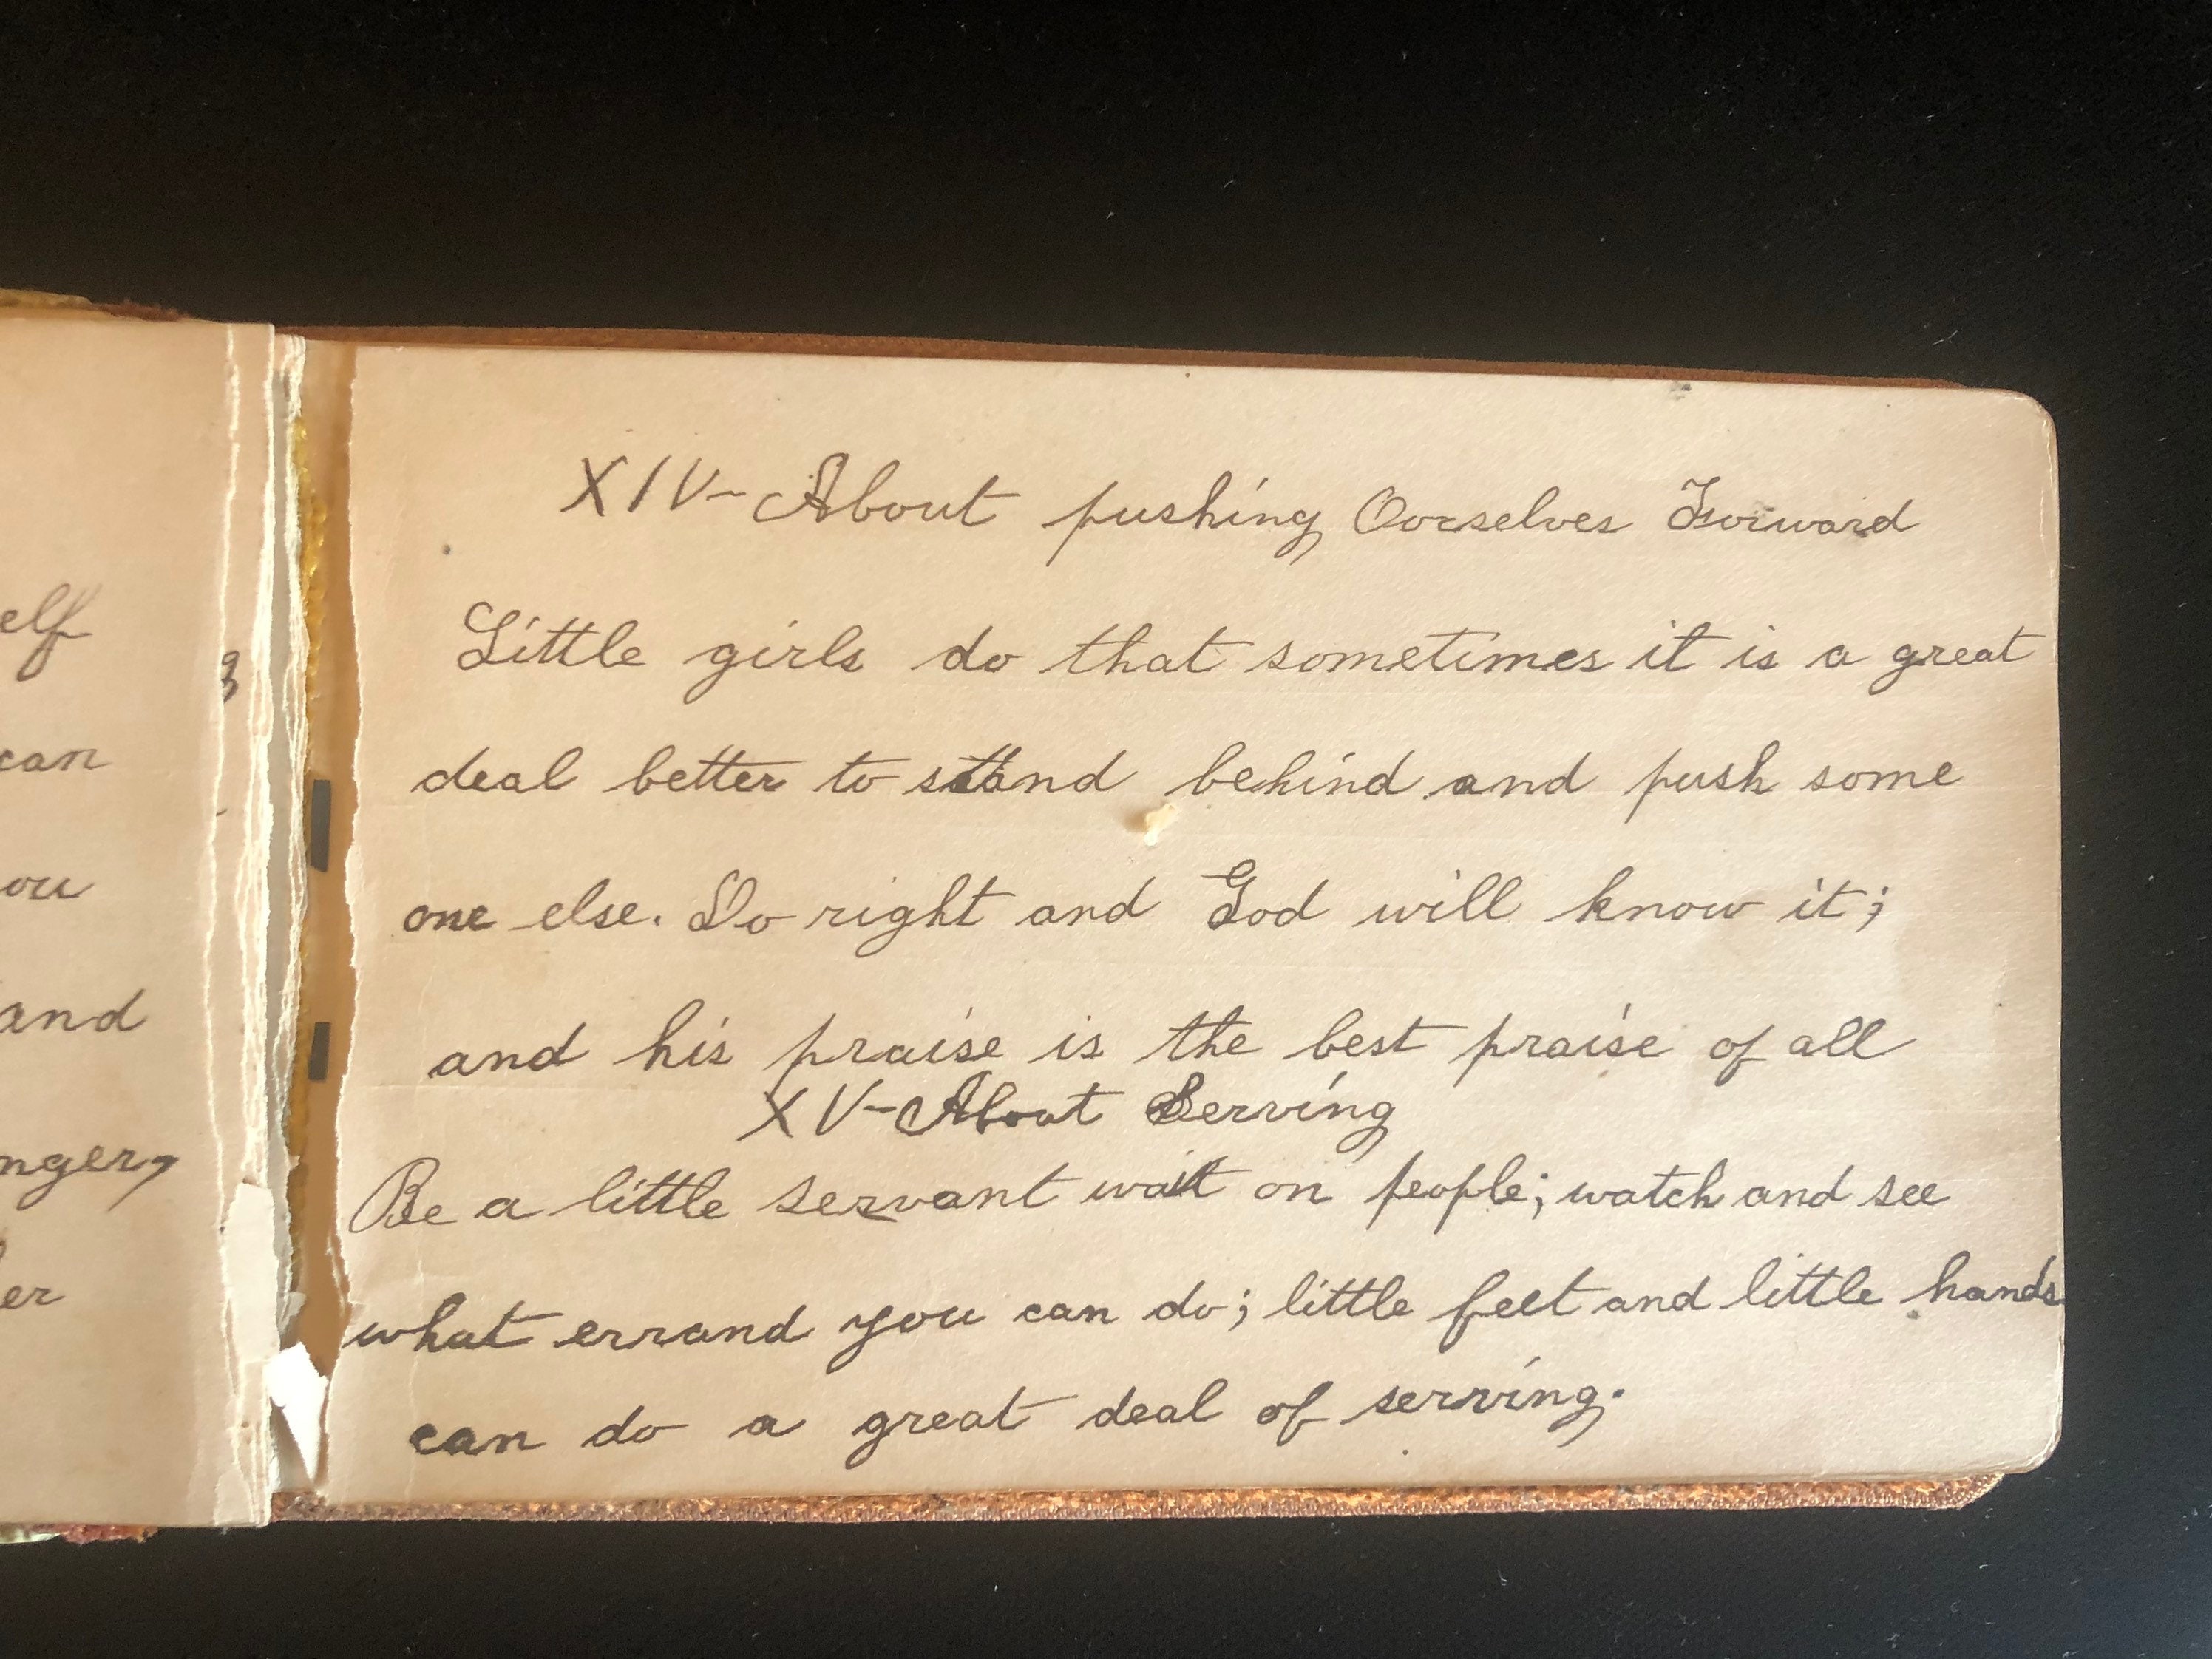 elf
can
ou
and
nger,
er
XIV- About pushing Ourselves Forward
Little girls do that sometimes it is a great
deal better to stand behind and push some
one else. Do right and God will know it;
and his praise is the best praise of all
XV- About Serving
Be a little servant wait on people; watch and see
what errand you can do; little feet and little hands
can do a great deal of serving.